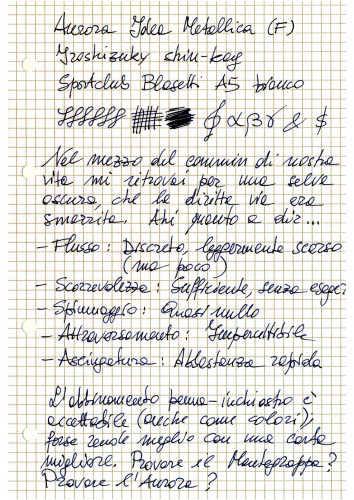 Aurora Idea Metallica (F)
Iroshizuku shin-kay
Sportclub Blasetti A5 bianco
∮ α β γ & $
Nel mezzo del cammin di nostra
vita mi ritrovai per una selva
oscura, che la diritta via era
smarrita. Ahi quanto a dir...
- Flusso: Discreto, leggermente scarso
(ma poco)
- Scorrevolezza: Sufficiente, senza esage
- Spiumaggio: Quasi nullo
- Attraversamento: Impercettibile
- Asciugatura: Abbastanza rapida
L'abbinamento penna-inchiostro è
accettabile (anche come colori),
forse rende meglio con una carta
migliore. Provare il Montegrappa?
Provare l'Aurora?